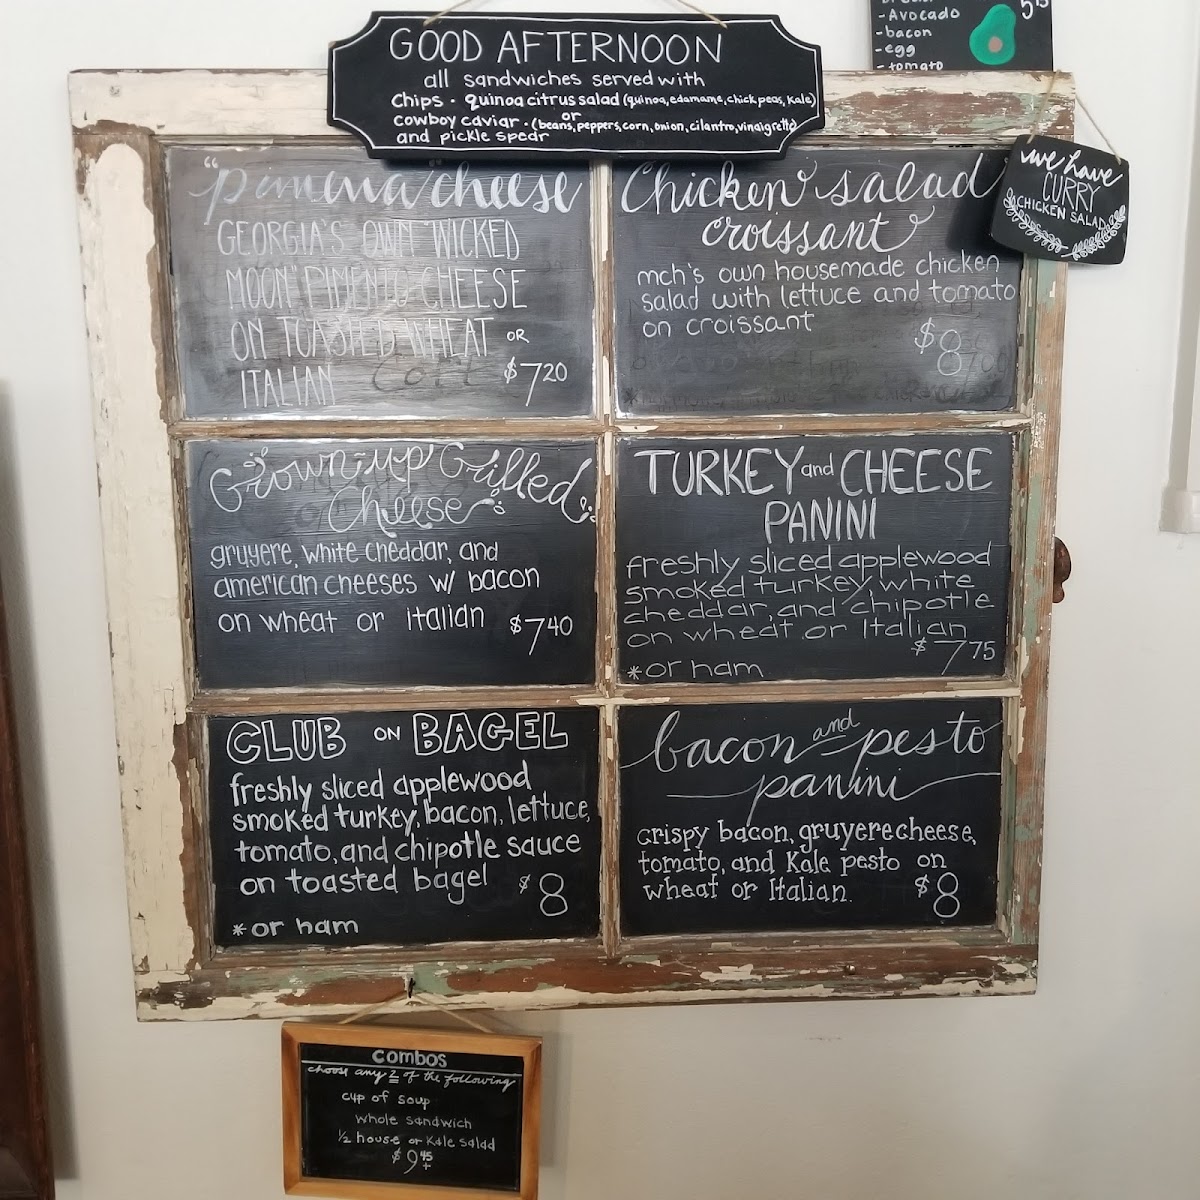 GOOD AFTERNOON
all sandwiches served with
chips · quinoa citrus salad (quinoa, edamame, chick peas, kale)
or
cowboy caviar · (beans, peppers, corn, onion, cilantro, vinaigrette)
and pickle spear
-Avocado
-bacon
-egg
-tomato
515
we have
CURRY
CHICKEN SALAD
"pimena" cheese
GEORGIA'S OWN WICKED
MOON" PIMENTO CHEESE
ON TOASTED WHEAT OR
ITALIAN $7 20
Chicken salad
croissant
mch's own housemade chicken
salad with lettuce and tomato
on croissant
$8
Grown-up Grilled
Cheese
gruyere, white cheddar, and
american cheeses w/ bacon
on wheat or italian $7 40
TURKEY and CHEESE
PANINI
freshly sliced applewood
smoked turkey, white
cheddar, and chipotle
on wheat or Italian
$7 75
*or ham
CLUB ON BAGEL
freshly sliced applewood
smoked turkey, bacon, lettuce,
tomato, and chipotle sauce
on toasted bagel $8
*or ham
bacon and pesto
panini
crispy bacon, gruyere cheese,
tomato, and Kale pesto on
wheat or Italian. $8
combos
choose any 2 of the following
cup of soup
whole sandwich
1/2 house or Kale salad
$9 45
+